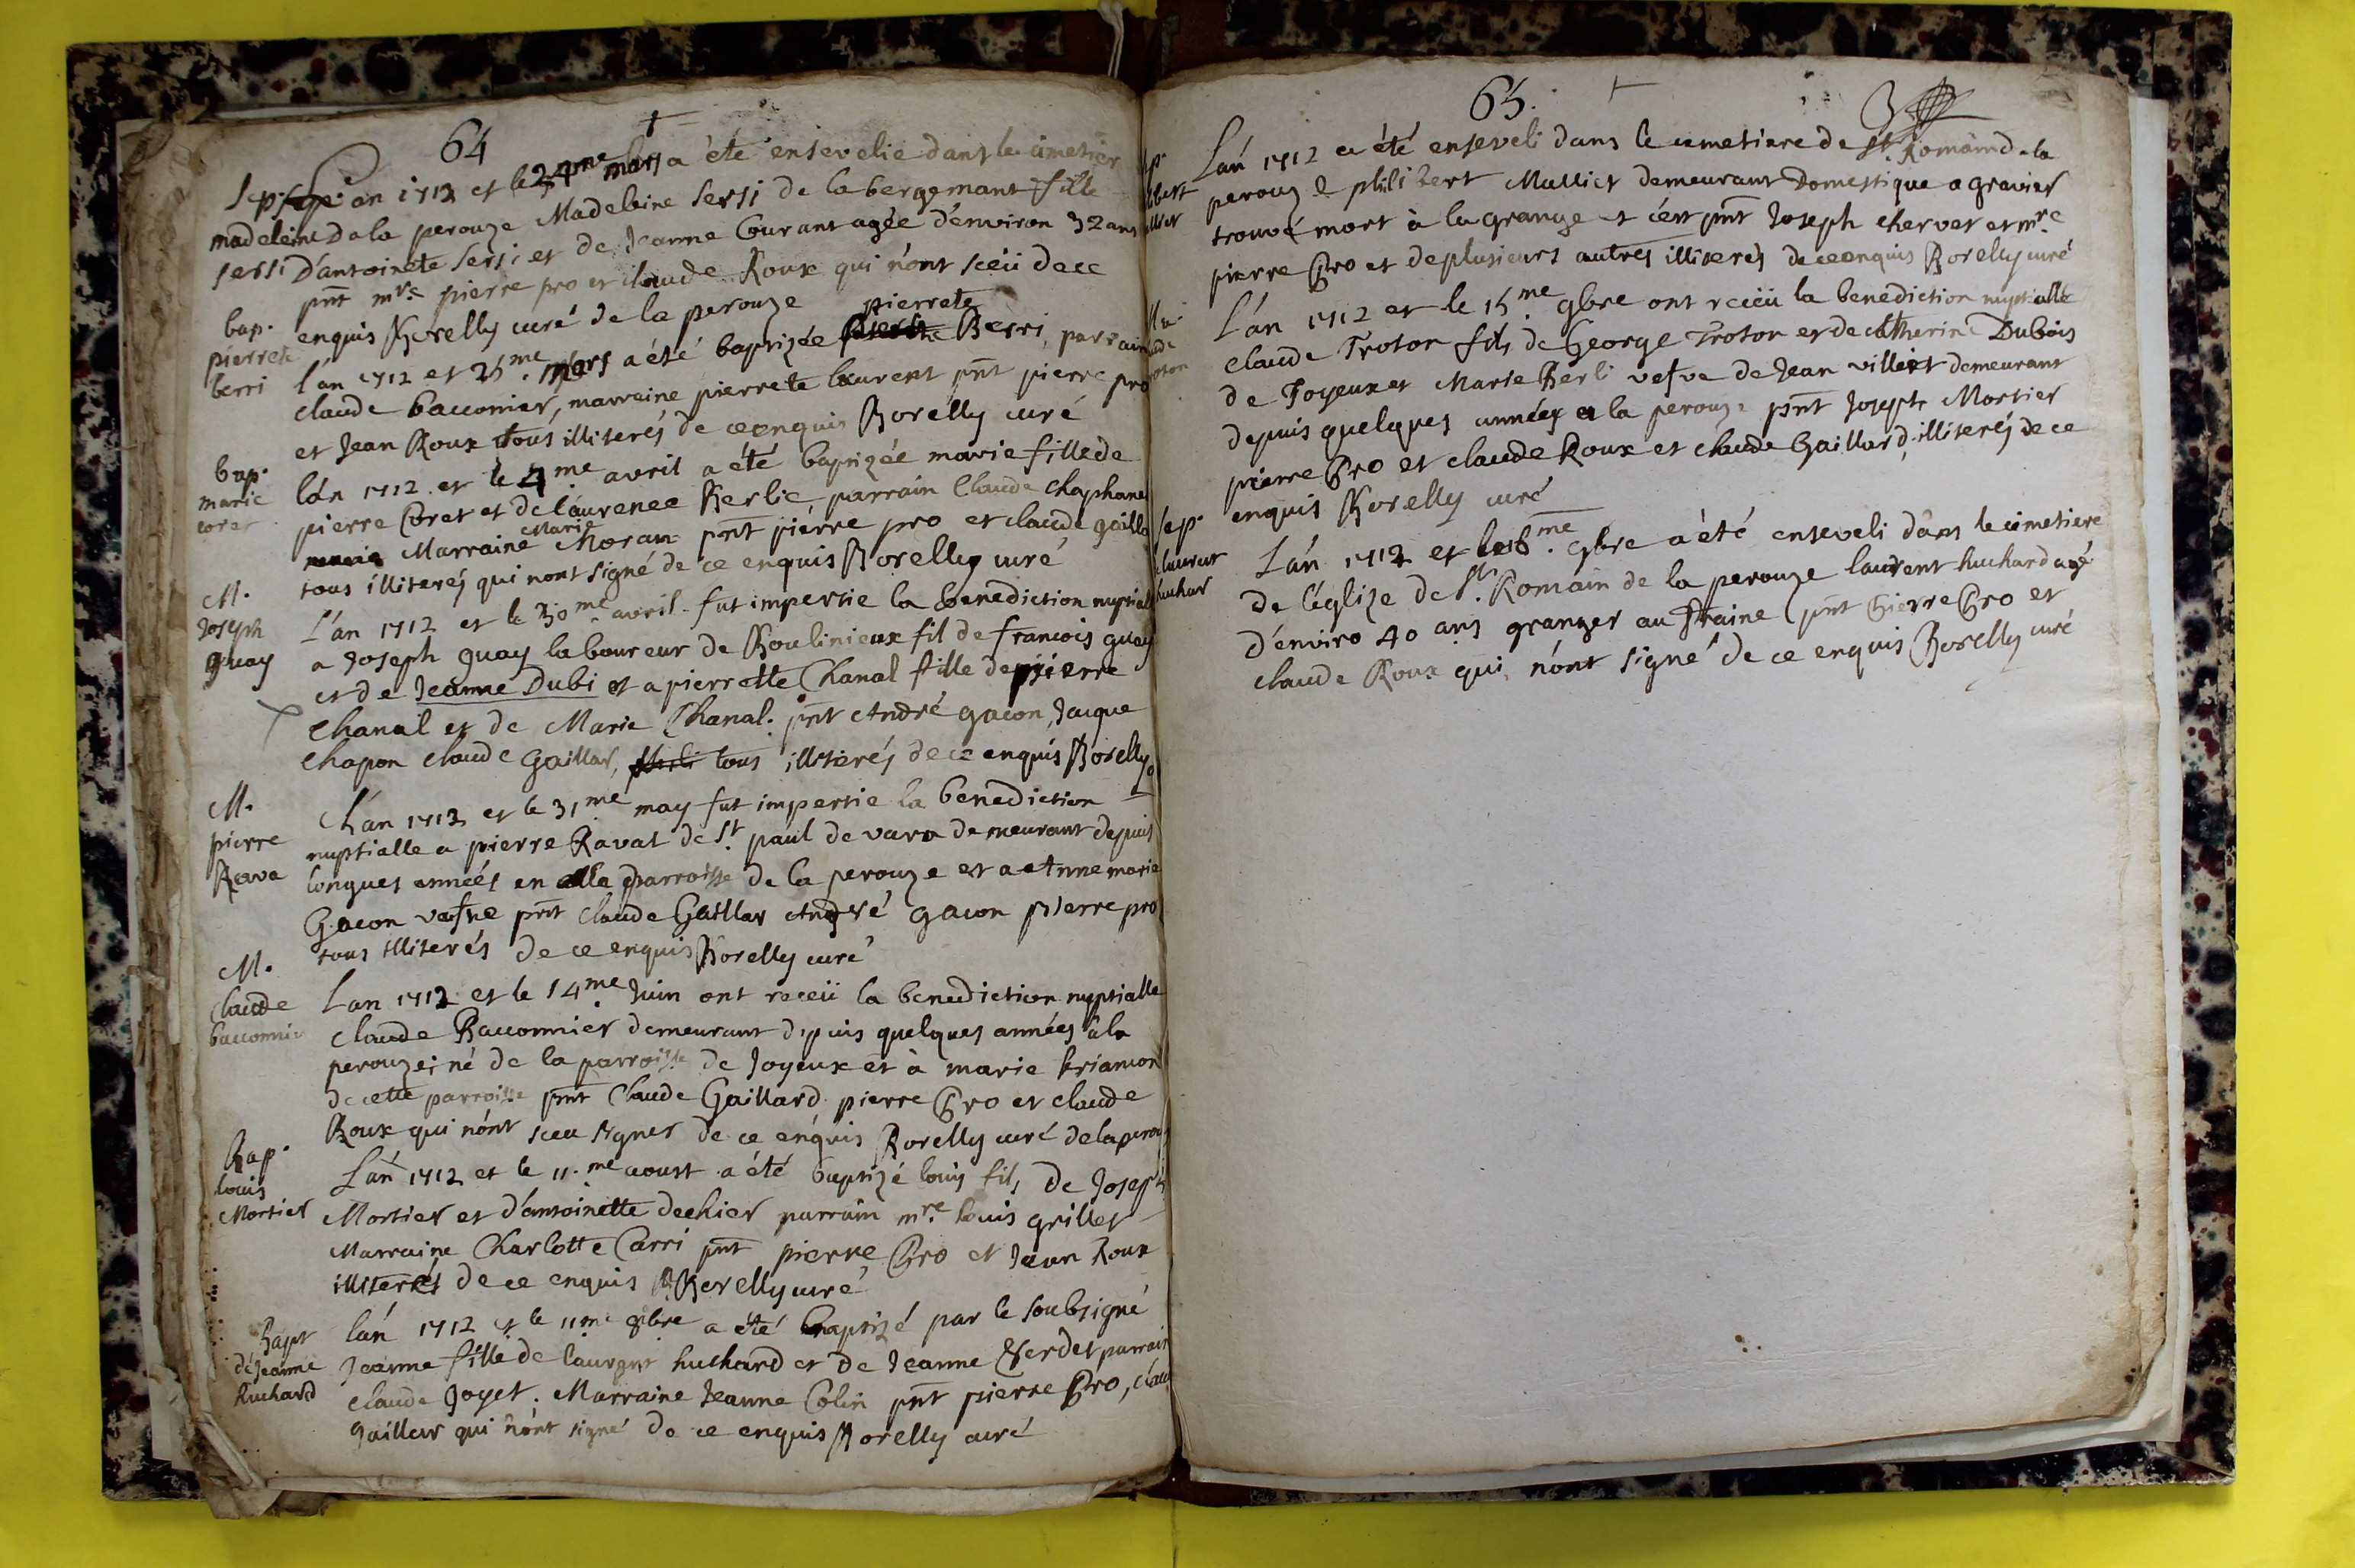 64
Sep. l'an 1712 et le 24me mars a été ensevelie dans le cimetier
madeleine De la perouze Madeleine Sersi de la bergemant fille
sersi D'antoinete Sersi et de Jeanne Courant agée d'environ 32 ans
pnt mre pierre pro et claude Roux qui n'ont sceü de ce
enquis Borelly curé de la perouze
bap.
pierrete
berri
pierrete
l'an 1712 et 25me. mars a été baptizée Berri, parrain
claude bauonier, marraine pierrete laurent pnt pierre pro
et Jean Roux tous illiterés de ce enquis Borelly curé
bap.
marie
coret
lán 1712 et le 4me avril a été baptizée marie fille de
pierre Coret et de laurence Berlie parrain Claude Chaphane
Marraine Marie Moran pnt pierre pro et claude gailla
tous illiterés qui nont signé de ce enquis Borelly curé
M.
Joseph
Guay
L'an 1712 et le 30me. avril fut impertie la benediction nuptiall
a Joseph guay laboureur de Roulinieux fil de francois guay
et de Jeanne Dubi et a pierrette Chanal fille de pierre
Chanal et de Marie Chanal. pnt André gacon, Jacque
Chapon claude Gaillar, tous illiterés de ce enquis Borelly
M.
pierre
Rava
L'an 1712 et le 31me may fut impertie la benediction
nuptialle a pierre Ravat de St. paul de varax demeurant depuis
longues années en parroisse de la perouze et a Anne marie
Gacon vefve pnt claude Gaillar André gacon pierre pro
tous illiterés de ce enquis Borelly curé
M.
Claude
bauonnie
Lan 1712 et le 14me. Juin ont receü la benediction nuptialle
claude Bauonnier demeurant depuis quelques années à la
perouze; né de la parroisse de Joyeux et à marie briancon
de cette parroisse pnt Claude Gaillard pierre Pro et claude
Roux qui n'ont sceu signer de ce enquis Borelly curé de la perou
Bap.
louis
Mortier
Lan 1712 et le 11.me aoust a été baptizé louis fils de Joseph
Mortier et d'antoinette dechier parrain mre. louis grillet
Marraine Charlotte Carri pnt pierre Pro et Jean Roux
illiterés de ce enquis Borelly curé
Bapt
de Jeanne
huchard
lán 1712 et le 11me 8bre a été baptizé par le soubsigné
Jeanne fille de laurent huchard et de Jeanne Verdet parrain
claude Joyet. Marraine Jeanne Colin pnt pierre Pro, clau
gaillar qui n'ont signé de ce enquis Borelly curé
65.
Lán 1712 a été enseveli dans le cimetiere de St. Romain de la
perouze philibert Mulliet demeurant Domestique a gravier
trouvé mort à la grange et c'est pnt Joseph chervet et mre
pierre Pro et de plusieurs autres illiterés de ce enquis Borelly curé
L'án 1712 et le 15me. 9bre ont receü la benediction nuptialle
claude Troton fils de George Troton et de catherine Dubois
de Joyeux et Marie Berli vefve de Jean villiet demeurant
depuis quelques années a la perouze pnt Joseph Mortier
pierre Pro et claude Roux et claude Gaillard, illiterés de ce
enquis Borelly curé
Sep.
laurent
huchar
Lán 1712 et le 18me. 9bre a été enseveli dans le cimetiere
de l'église de St. Romain de la perouze laurent huchard agé
d'enviro 40 ans granger au Fraine pnt Pierre Pro et
claude Roux qui n'ont signé de ce enquis Borelly curé